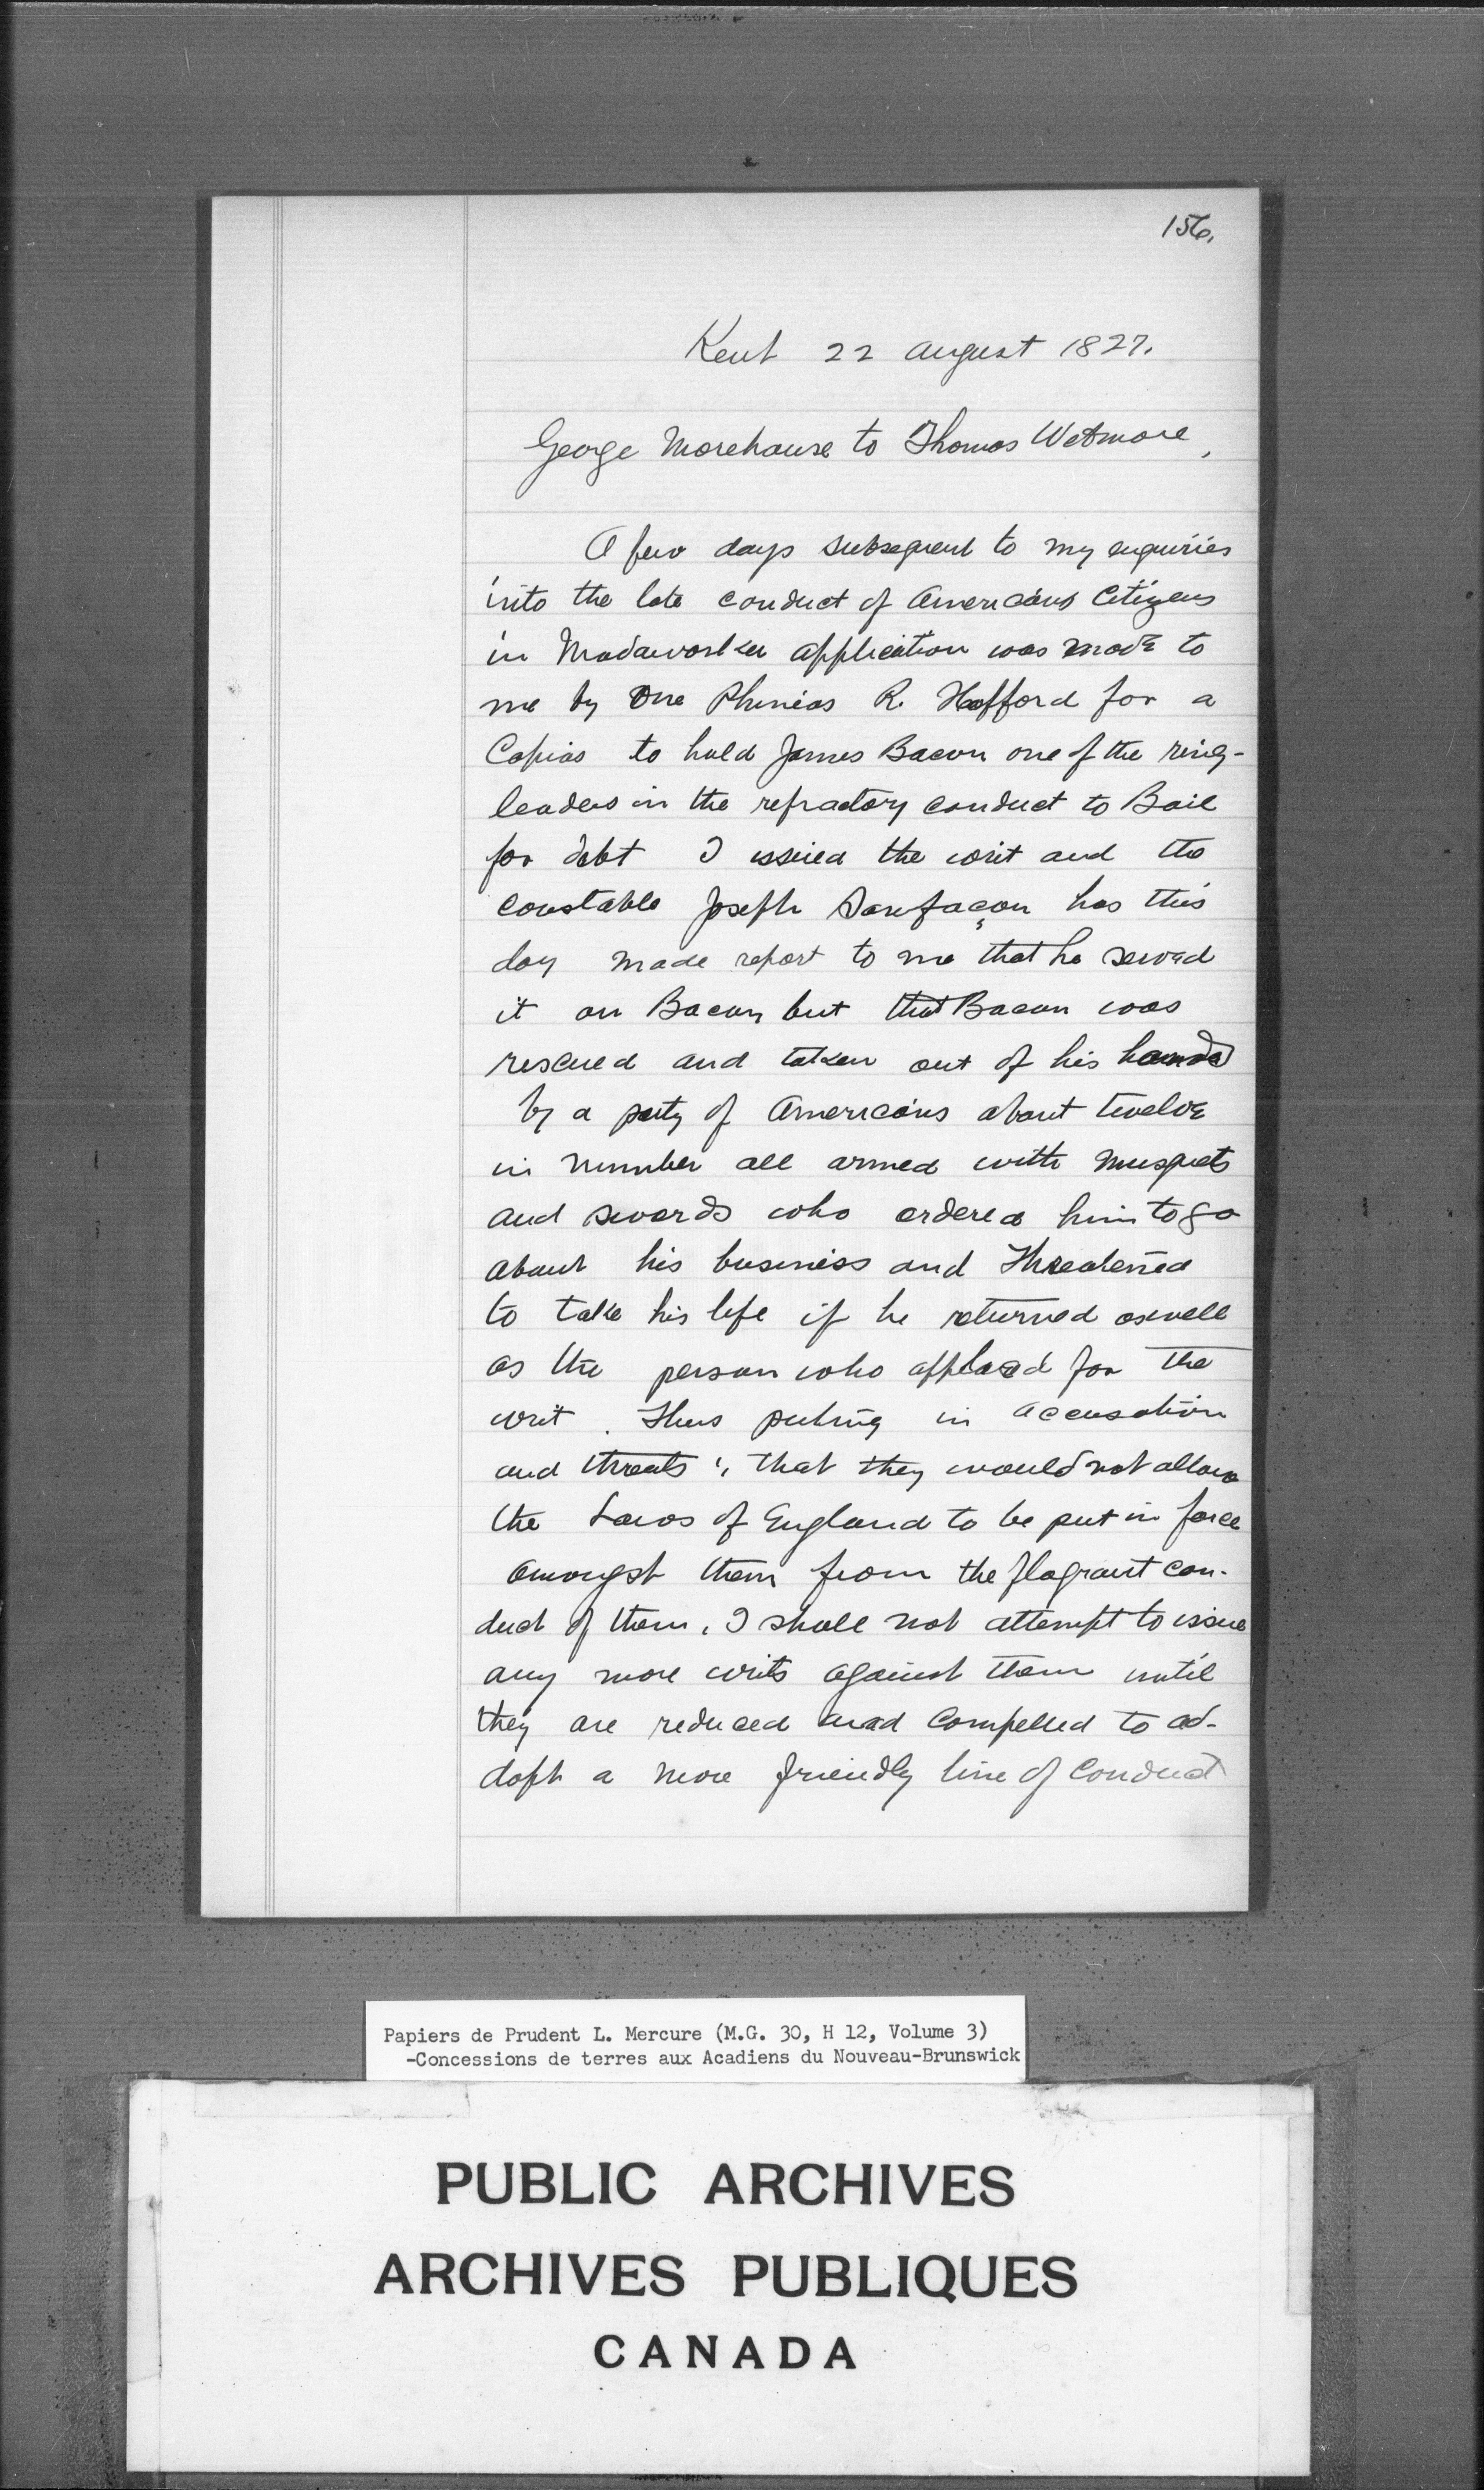 156.
Kent 22 august 1827.
George Morehouse to Thomas Wetmore,
A few days subsequent to my enquiries
into the late conduct of Americans Citizens
in Madawaska application was made to
me by one Phineas R. Hafford for a
Capias to hold James Bacon one of the ring-
leaders in the refractory conduct to Bail
for debt I issued the writ and the
constable Joseph Sansfaçon has this
day made report to me that he served
it on Bacon but that Bacon was
rescued and taken out of his hands
by a party of Americans about twelve
in number all armed with musquets
and swords who ordered him to go
about his business and Threatened
to take his life if he returned aswell
as the person who applied for the
writ. Thus puting in accusation
and threats, that they would not allow
the Laws of England to be put in force
amongst them from the flagrant con-
duct of them, I shall not attempt to issue
any more writs against them until
they are reduced and compelled to ad-
dopt a more friendly line of Conduct
Papiers de Prudent L. Mercure (M.G. 30, H 12, Volume 3)
-Concessions de terres aux Acadiens du Nouveau-Brunswick
PUBLIC ARCHIVES
ARCHIVES PUBLIQUES
CANADA